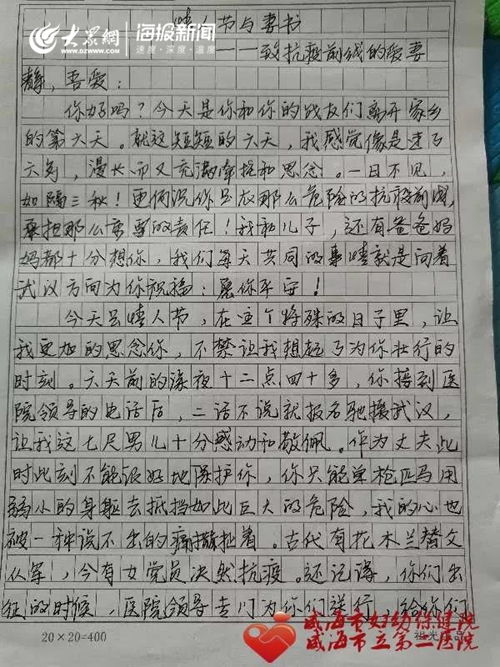 大众网 海报新闻
速度·深度·温度
情人节与妻书
——致抗疫前线的爱妻
静，吾爱：
你好吗？今天是你和你的战友们离开家乡
的第六天。就这短短的六天，我感觉像是过了
六年，漫长而又充满牵挂和思念。一日不见，
如隔三秋！更何况你是在那么危险的抗疫前线，
承担那么重要的责任！我和儿子，还有爸爸妈
妈都十分想你，我们每天共同的事情就是向着
武汉方向为你祝福：愿你平安！
今天是情人节，在这个特殊的日子里，让
我更加的思念你，不禁让我想起了为你壮行的
时刻。六天前的深夜十二点四十多，你接到医
院领导的电话后，二话不说就报名驰援武汉，
让我这七尺男儿十分感动和敬佩。作为丈夫此
时此刻不能很好地保护你，你只能单枪匹马用
弱小的身躯去抵挡如此巨大的危险，我的心也
被一种说不出的痛撕扯着。古代有花木兰替父
从军，今有女党员决然抗疫。还记得，你们出
征的时候，医院领导专门为你们送行，给你们
20×20=400
威海市妇幼保健院
威海市立第二医院